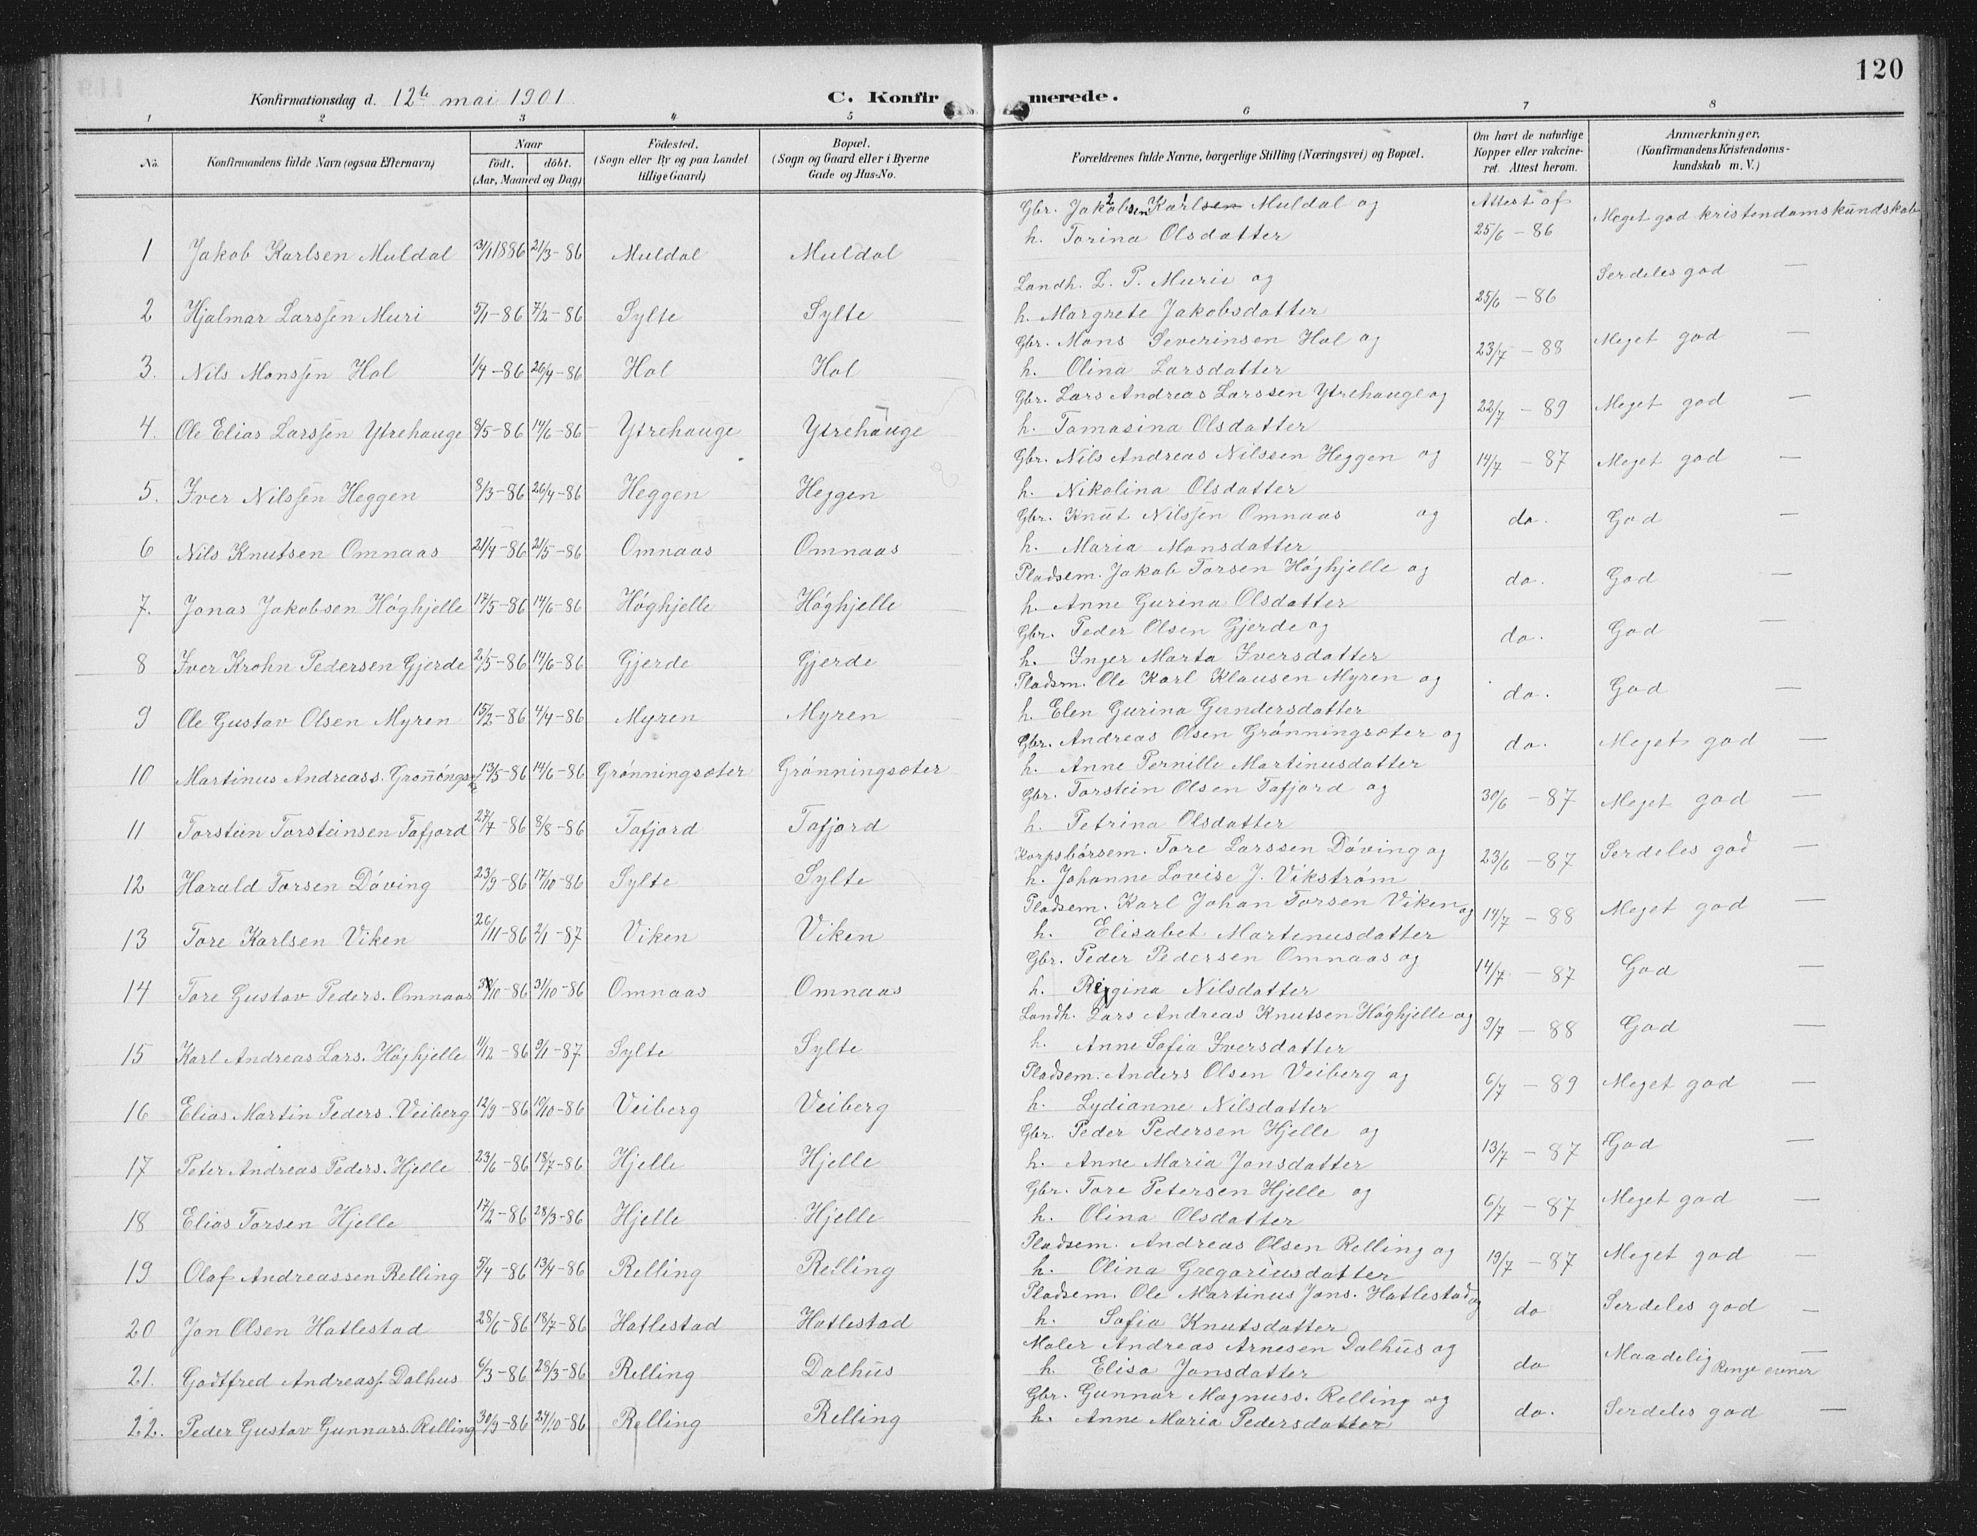 120
Konfirmationsdag d. 12te mai 1901. C. Konfirmerede.
1 2 3 4 5 6 7 8
No. Konfirmandens fulde Navn (ogsaa Efternavn) Naar födt. döbt. (Aar, Maaned og Dag) Födested. (Sogn eller By og paa Landet tillige Gaard) Bopæl. (Sogn og Gaard eller i Byerne Gade og Hus-No. Forældrenes fulde Navne, borgerlige Stilling (Næringsvei) og Bopæl. Om havt de naturlige Kopper eller vakcineret. Attest herom. Anmærkninger. (Konfirmandens Kristendomskundskab m. V.)
Gbr. Jakobsen Karlsen Muldal og Attest af Meget god kristendomskundskab
1 Jakob Karlsen Muldal 31/1 1886 21/3-86 Muldal Muldal h. Torina Olsdatter 25/6-86
Landh. L. P. Muri og Serdeles god —
2 Hjalmar Larssen Muri 5/1-86 7/2-86 Sylte Sylte h. Margrete Jakobsdatter 25/6-86
Gbr. Mons Severinsen Hol og Meget god —
3. Nils Monssen Hol 1/4-86 26/4-86 Hol Hol h. Olina Larsdatter 23/7-88
Gbr. Lars Andreas Larssen Ytrehauge og Meget god —
4. Ole Elias Larssen Ytrehauge 8/5-86 14/6-86 Ytrehauge Ytrehauge h. Tomasina Olsdatter 22/7-89
Gbr. Nils Andreas Nilssen Heggen og 14/7-87 Meget god —
5. Iver Nilssen Heggen 8/3-86 26/4-86 Heggen Heggen h. Nikolina Olsdatter
Gbr. Knut Nilssen Omnaas og do. God —
6 Nils Knutsen Omnaas 21/4-86 21/5-86 Omnaas Omnaas h. Maria Monsdatter
Pladsem. Jakob Torsen Höghjelle og do. God —
7. Jonas Jakobsen Höghjelle 17/5-86 14/6-86 Höghjelle Höghjelle h. Anne Gurina Olsdatter
Gbr. Peder Olsen Gjerde og do. God —
8 Iver Krohn Pedersen Gjerde 2/5-86 14/6-86 Gjerde Gjerde h. Inger Marta Iversdatter
Pladsm. Ole Karl Klausen Myren og do. God —
9 Ole Gustav Olsen Myren 15/2-86 4/4-86 Myren Myren h. Elen Gurina Gundersdatter
Gbr. Andreas Olsen Grönningsæter og do. Meget god —
10 Martinus Andreass. 13/5-86 14/6-86 Grönningsæter Grönningsæter h. Anne Pernille Martinusdatter
Gbr. Torstein Olsen Tafjord og 30/6-87 Meget god —
11 Torstein Torsteinsen Tafjord 27/7-86 8/8-86 Tafjord Tafjord h. Petrina Olsdatter
Korpsbörsem. Tore Larssen Döving og 23/6-87 Serdeles god —
12 Harald Torsen Döving 23/9-86 17/10-86 Sylte Sylte h. Johanne Lovise J. Vikström
Pladsem. Karl Johan Torsen Viken og 14/7-88 Meget god —
13 Tore Karlsen Viken 26/11-86 2/1-87 Viken Viken h. Elisabet Martinusdatter
Gbr. Peder Pedersen Omnaas og 14/7-87 God —
14 Tore Gustav Peders. Omnaas 31/10-86 Omnaas Omnaas h. Regina Nilsdatter
Landh. Lars Andreas Knutsen Höghjelle og 9/7-88 God —
15 Karl Andreas Lars. Höghjelle 11/12-86 9/1-87 Sylte Sylte h. Anne Sofia Iversdatter
Pladsem. Anders Olsen Veiberg og 6/7-89 Meget god —
16 Elias Martin Peders. Veiberg 12/9-86 10/10-86 Veiberg Veiberg h. Lydianne Nilsdatter
Gbr. Peder Pedersen Hjelle og 13/7-87 God —
17 Peter Andreas Peders. Hjelle 23/6-86 18/7-86 Hjelle Hjelle h. Anne Maria Jonsdatter
Gbr. Tore Petersen Hjelle og 6/7-87 Meget god —
18 Elias Torsen Hjelle 17/2-86 28/3-86 Hjelle Hjelle h. Olina Olsdatter
Pladsem. Andreas Olsen Relling og 19/7-87 Meget god —
19 Olaf Andreassen Relling 5/4-86 13/4-86 Relling Relling h. Olina Gregoriusdatter
Pladsem. Ole Martinus Jons. Hatlestad og do Serdeles god —
20 Jon Olsen Hatlestad 28/6-86 18/7-86 Hatlestad Hatlestad h. Sofia Knutsdatter
Maler Andreas Arnesen Dalhus og do Maadelig Ringe evner —
21. Godtfred Andreass. Dalhus 6/3-86 28/3-86 Relling Dalhus h. Elisa Jonsdatter
Gbr. Gunnar Magnuss. Relling og do. Serdeles god —
22. Peder Gustav Gunnars. Relling 30/9-86 24/10-86 Relling Relling h. Anne Maria Pedersdatter